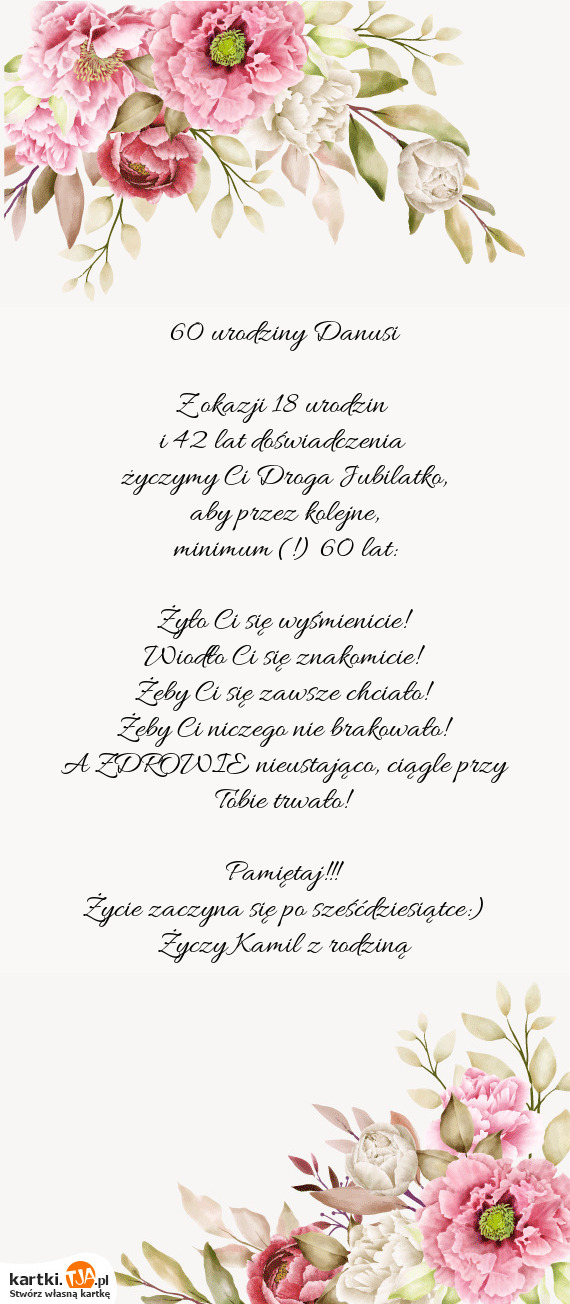 60 urodziny Danusi
Z okazji 18 urodzin
i 42 lat doświadczenia
życzymy Ci Droga Jubilatko,
aby przez kolejne,
minimum (!) 60 lat:
Żyło Ci się wyśmienicie!
Wiodło Ci się znakomicie!
Żeby Ci się zawsze chciało!
Żeby Ci niczego nie brakowało!
A ZDROWIE nieustająco, ciągle przy
Tobie trwało!
Pamiętaj!!!
Życie zaczyna się po sześćdziesiątce:)
Życzy Kamil z rodziną
kartki.TJA.pl
Stwórz własną kartkę